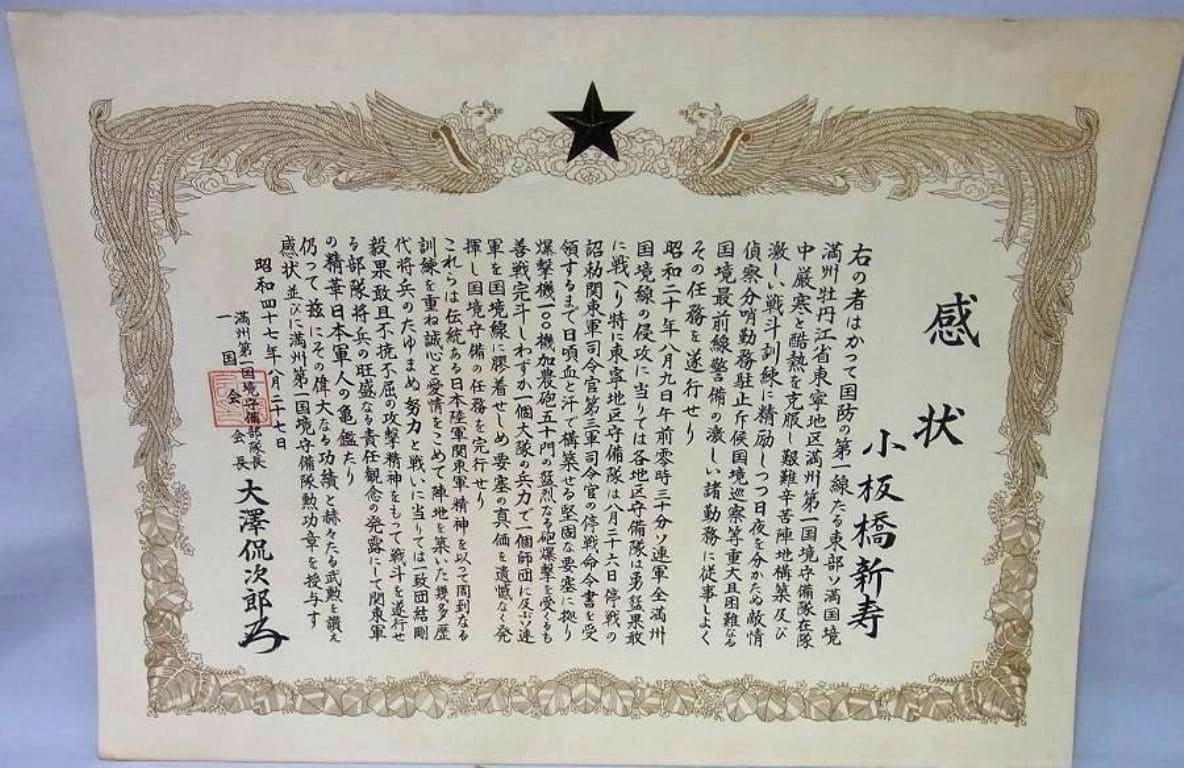 感状
小板橋新寿
右の者はかつて国防の第一線たる東部ソ満国境
満州牡丹江省東寧地区満州第一国境守備隊在隊
中厳寒と酷熱を克服し艱難辛苦陣地構築及び
激しい戦斗訓練に精励しつつ日夜を分かたぬ敵情
偵察分哨勤務駐止斥候国境巡察等重大且困難なる
国境最前線警備の激しい諸勤務に従事しよく
その任務を遂行せり
昭和二十年八月九日午前零時三十分ソ連軍全満州
国境線の侵攻に当りては各地区守備隊は勇猛果敢
に戦へり特に東寧地区守備隊は八月二十六日停戦の
詔勅関東軍司令官第三軍司令官の停戦命令書を受
領するまで日頃血と汗で構築せる堅固な要塞に拠り
爆撃機一〇〇機加農砲五十門の猛烈なる砲爆撃を受くるも
善戦完斗しわずか一個大隊の兵力で一個師団に及ぶソ連
軍を国境線に膠着せしめ要塞の真価を遺憾なく発
揮し国境守備の任務を完行せり
これらは伝統ある日本陸軍関東軍精神を以って周到なる
訓練を重ね誠心と愛情をこめて陣地を築いた幾多歴
代将兵のたゆまぬ努力と戦いに当りては一致団結剛
毅果敢且不撓不屈の攻撃精神をもって戦斗を遂行せ
る部隊将兵の旺盛なる責任観念の発露にして関東軍
の精華日本軍人の亀鑑たり
仍って茲にその偉大なる功績と赫々たる武勲を讃え
感状並びに満州第一国境守備隊勲功章を授与す
昭和四十七年八月二十七日
満州第一国境守備部隊長
一国会会長
大澤侃次郎